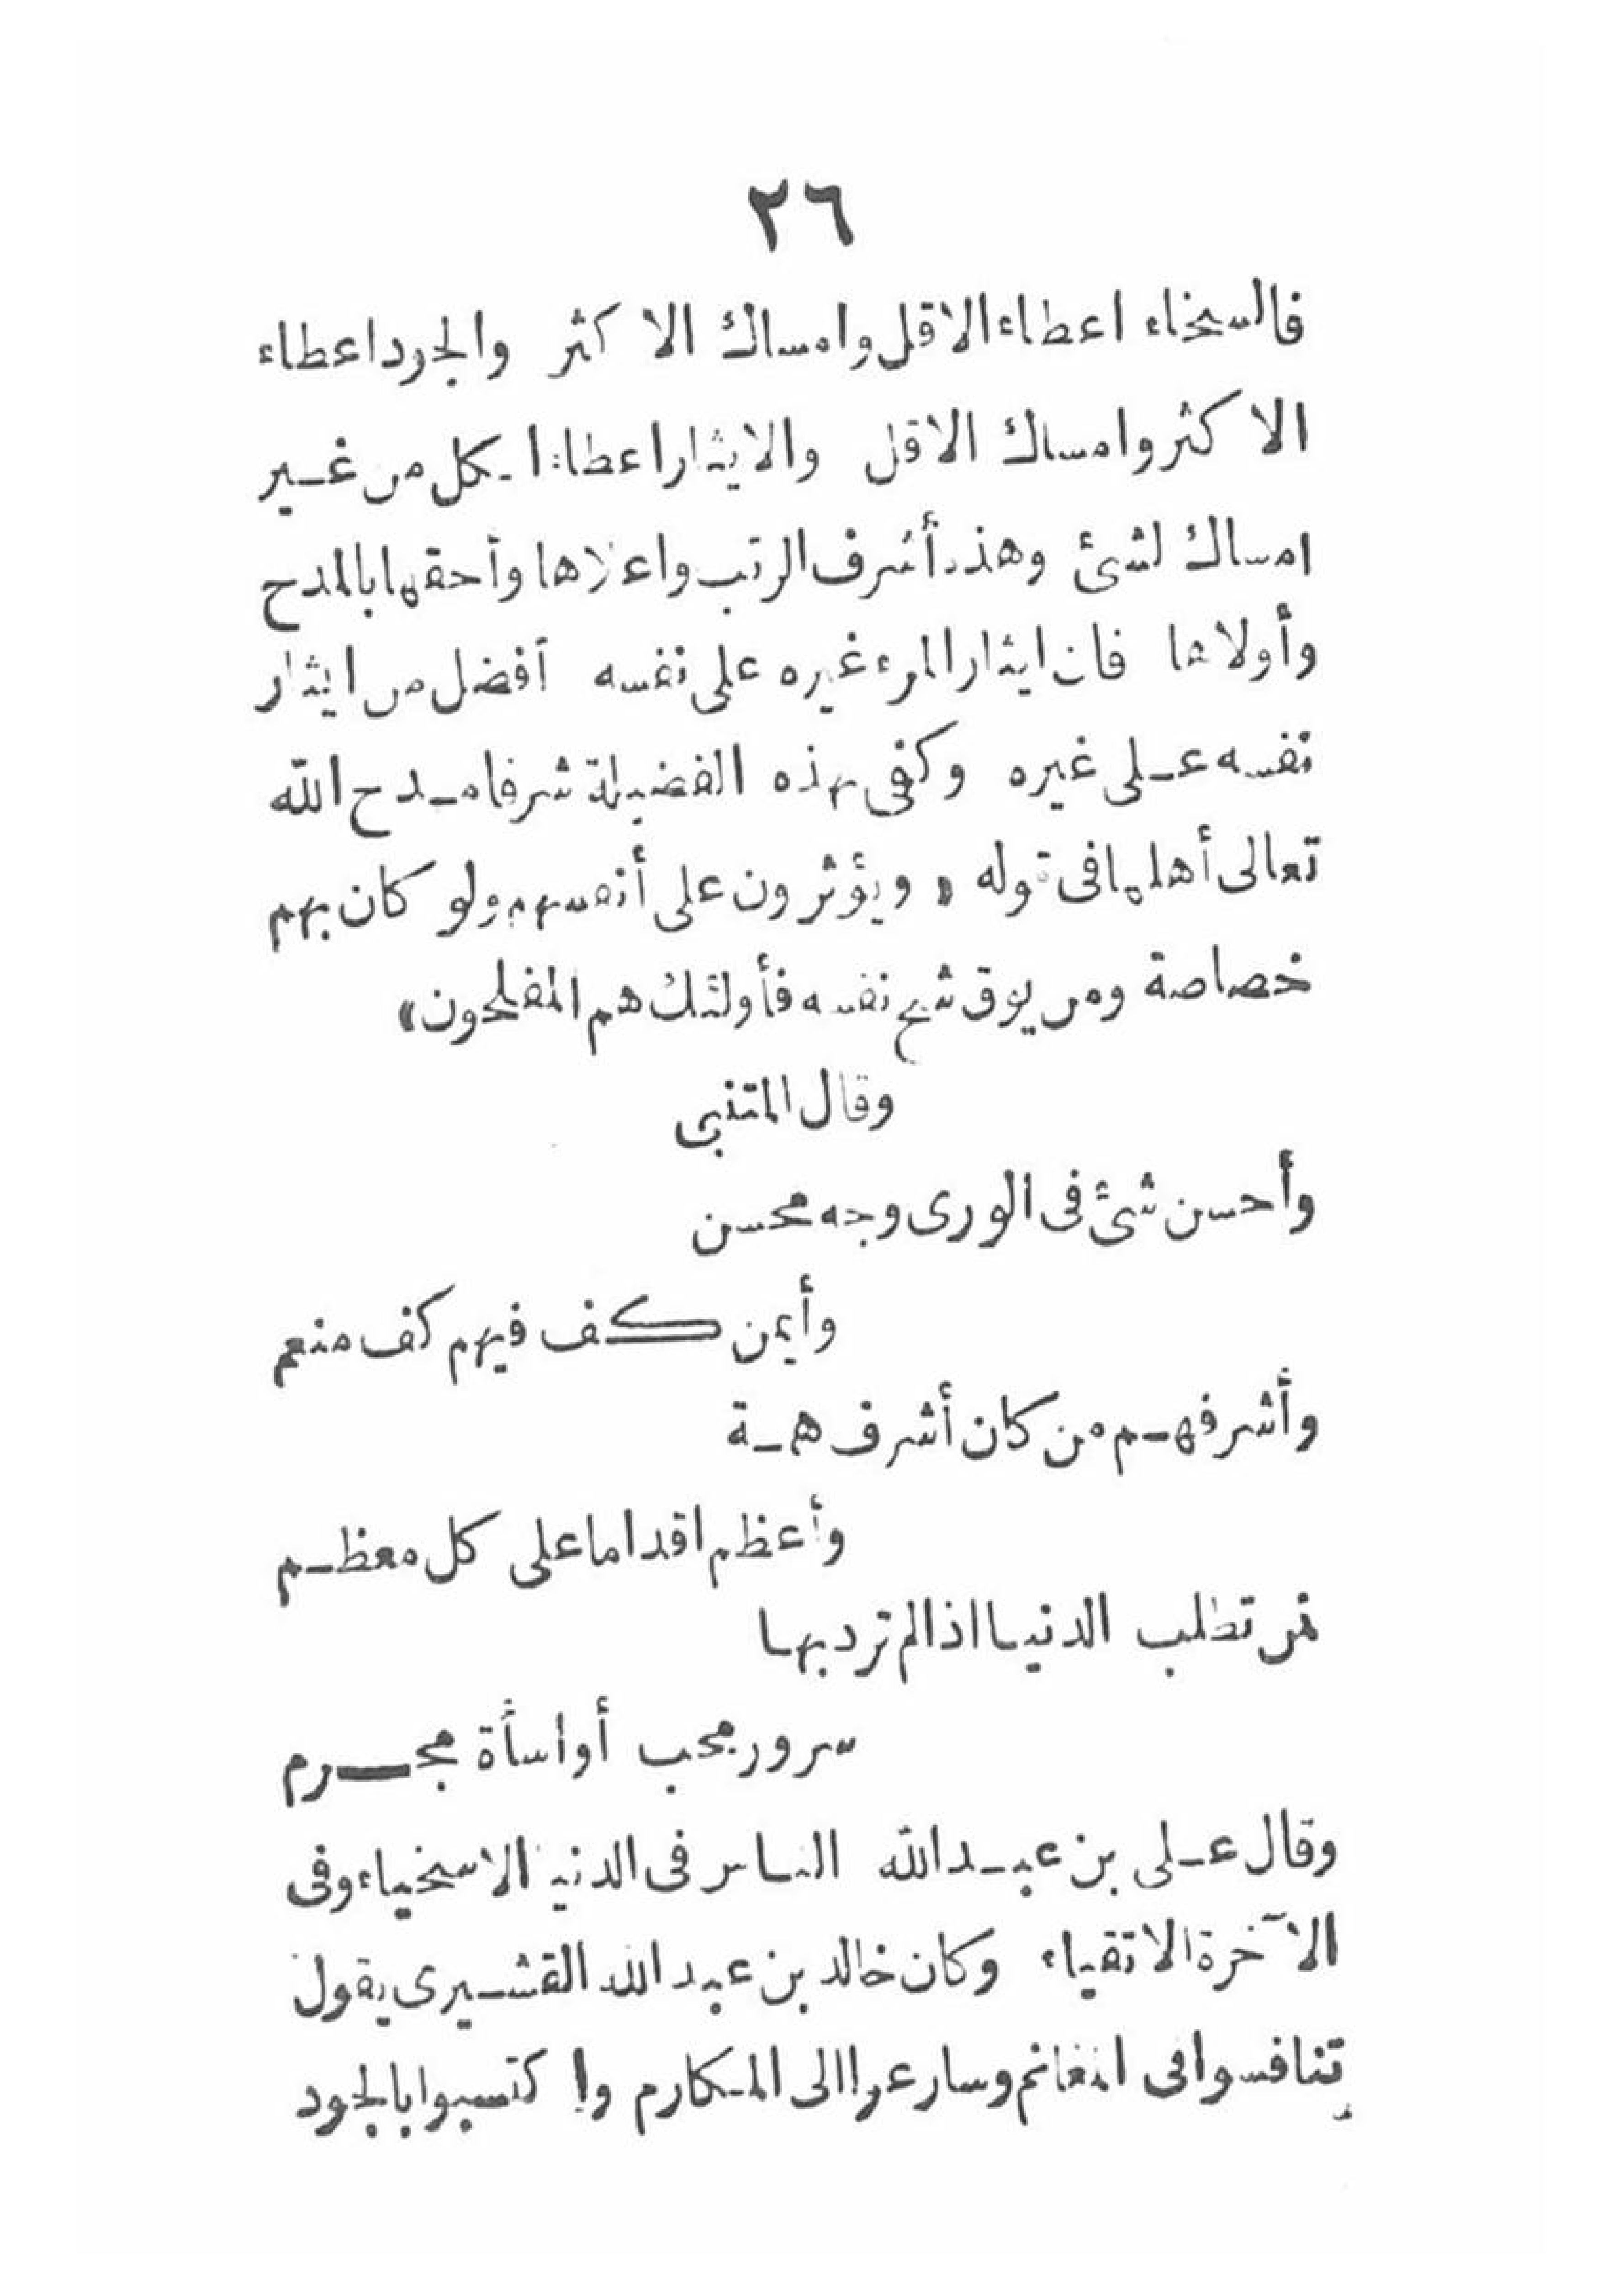 ٢٦
فالسخاء اعطاء الاقل وامساك الاكثر والجود اعطاء
الاكثر وامساك الاقل والايثار اعطاء الكل من غير
امساك لشئ وهذه أشرف الرتب واعلاها وأحقها بالمدح
وأولاها فان ايثار المرء غيره على نفسه أفضل من ايثار
نفسه على غيره وكفى بهذه الفضيلة شرفا مدح الله
تعالى أهلها فى قوله « ويؤثرون على أنفسهم ولو كان بهم
خصاصة ومن يوق شح نفسه فأولئك هم المفلحون»
وقال المتنبى
وأحسن شئ فى الورى وجه محسن
وأيمن كف فيهم كف منعم
وأشرفهم من كان أشرف همة
وأعظم اقداما على كل معظم
لمن تطلب الدنيا اذا لم ترد بها
سرور محب أو اسأة مجرم
وقال على بن عبد الله الناس فى الدنيا الاسخياء وفى
الآخرة الاتقياء وكان خالد بن عبد الله القشيرى يقول
تنافسوا فى المغانم وسارعوا الى المكارم واكتسبوا بالجود